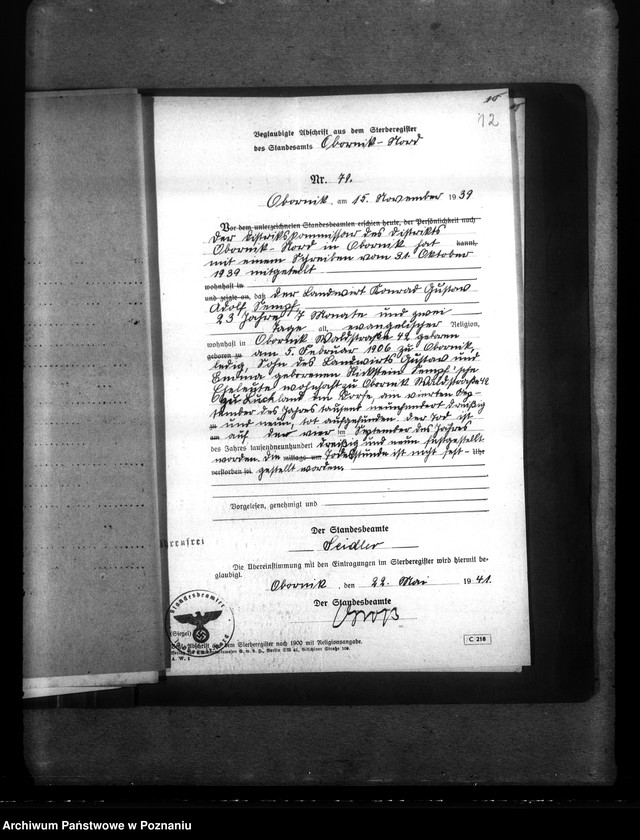 12
Beglaubigte Abschrift aus dem Sterberegister
des Standesamts Obornik-Nord
Nr. 79.
Obornik, am 15. November 1939
Vor dem unterzeichneten Standesbeamten erschien heute, der Persönlichkeit nach
Der Distriktskommissar des Distrikts
Obornik-Nord in Obornik hat kannt,
mit einem Schreiben vom 31. Oktober
1939 mitgeteilt
wohnhaft in
und zeigte an, daß der Landwirt Konrad Gustav
Adolf
23 Jahre 7 Monate und zwei
Tage alt, evangelischer Religion,
wohnhaft in Obornik Waldstraße 42 geboren
geboren zu am 5. Februar 1906 zu Obornik,
ledig, Sohn des Landwirts Gustav und
Emma geborenen
Eheleute wohnhaft zu Obornik Waldstraße 42
zu am vierten Sep-
tember des Jahres tausend neunhundert dreißig
und neun, tot aufgefunden. Der Tod ist
auf den vier ten September des Jahres
des Jahres tausendneunhundert dreißig und neun festgestellt
worden. Die mittags um Todesstunde ist nicht fest- Uhr
verstorben sei gestellt worden.
Vorgelesen, genehmigt und
Der Standesbeamte
Seidler
Die Übereinstimmung mit den Eintragungen im Sterberegister wird hiermit be-
glaubigt.
Obornik, den 22. Mai 1941
Der Standesbeamte
(Siegel)
Abschrift aus dem Sterberegister nach 1900 mit Religionsangabe.
C 218
Archiwum Państwowe w Poznaniu